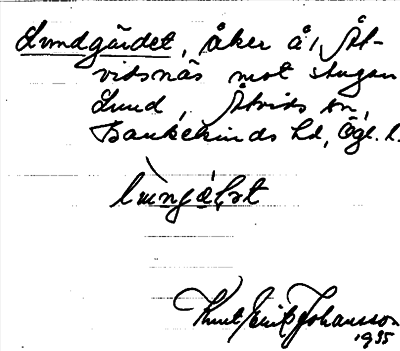 Lundgärdet, åker å/ Åt-
vidsnäs mot stugan
Lund, Åtvids sn,
Bankekinds hd, Ögl. l.
Knut Erik Johansson
1935